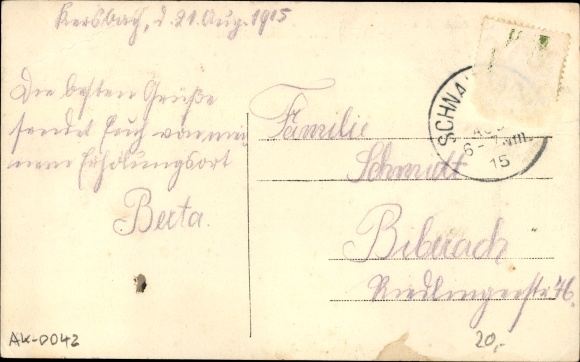 Kersbach, d. 21. Aug. 1915
Die besten Grüße
sendet Euch von mei
nem Erholungsort
Berta.
Familie
Schmidt
Biberach
Riedlingerstr 76.
SCHNA
AUG
6-7 Nm.
15
AK-0042
20,-